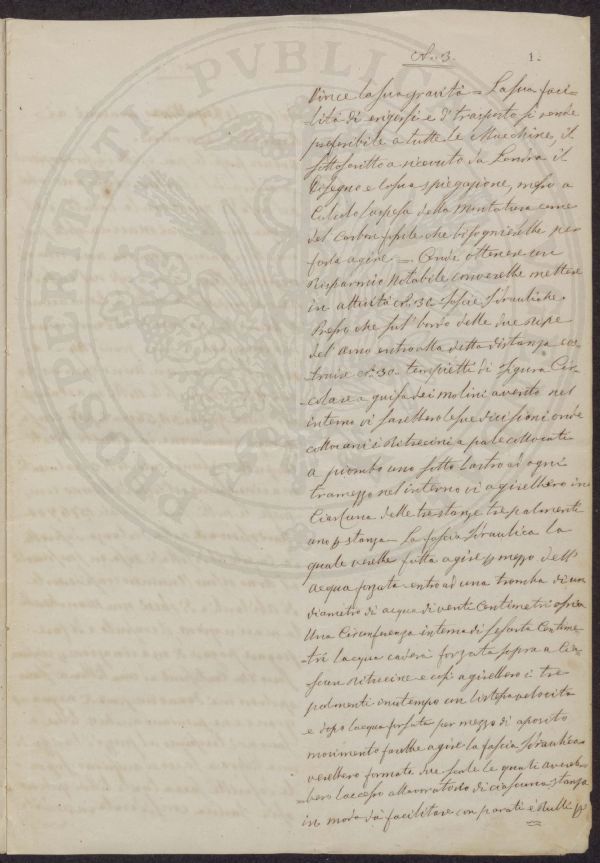 N. 3. 1.
Vince la sua gravità = La sua faci=
=lità di erigersi e d'trasporto si rende
preferibile a tutte le Macchine, il
sottoscritto a ricevuto da Londra il
Disegno e la sua spiegazione, messo a
Calcolo la spesa della Montatura come
del Carbon fossile che bisognierebbe per
farla agire = Onde ottenere un
Risparmio Notabile converebbe mettere
in attività N. 30 fascie Idrauliche.
Presso che sul bordo delle due Ripe
del Arno entro alla detta distanza co=
struire N. 30 tempietti di figura Cir=
=colare a guisa dei molini avento nel
interno vi sarebbero le sue divisioni onde
collocarvi i Ritrecini a pale collocati
a piombo uno sotto l'astro ad ogni
tramezzo nel interno vi agirebbero in
Ciascuna delle tre stanze tre palmenti
uno p stanza = La fascia Idraulica la
quale verebbe fatta agire p mezzo dell'
acqua forzata entro ad una tromba di un
diametro di acqua di venti Centimetri ossia
Una Circonferenza interna di sesanta Centime=
=tri l'acqua caderà forzata sopra a Cia=
=scun Ritrecine e così agirebbero i tre
palmenti in un tempo con la stessa velocità
e dopo l'acqua forzata per mezzo di aposito
movimento farebbe agire la fascia Idraulica
verebbero formate due scale le quali avereb=
=bero l'accesso al lavoratorio di ciascuna stanza
in modo da facilitare con parati e Rulli p